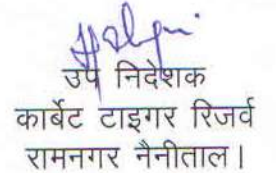 उप निदेशक
कार्बेट टाइगर रिजर्व
रामनगर नैनीताल।